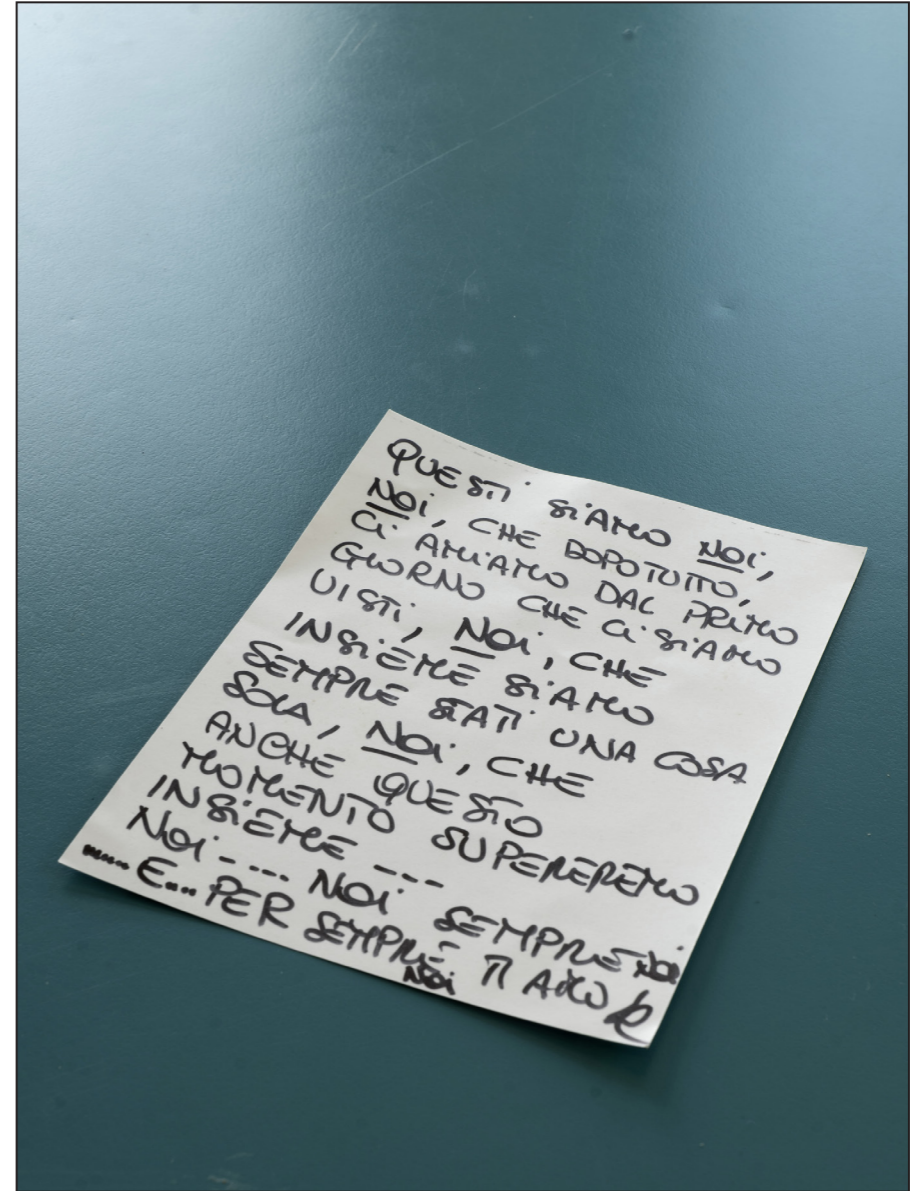 QUESTI SIAMO NOI,
NOI, CHE DOPOTUTTO,
CI AMIAMO DAL PRIMO
GIORNO CHE CI SIAMO
VISTI, NOI, CHE
INSIEME SIAMO
SEMPRE STATI UNA COSA
SOLA, NOI, CHE
ANCHE QUESTO
MOMENTO SUPEREREMO
INSIEME ---
NOI---- NOI SEMPRE NOI
...... E... PER SEMPRE TI AMO
NOI